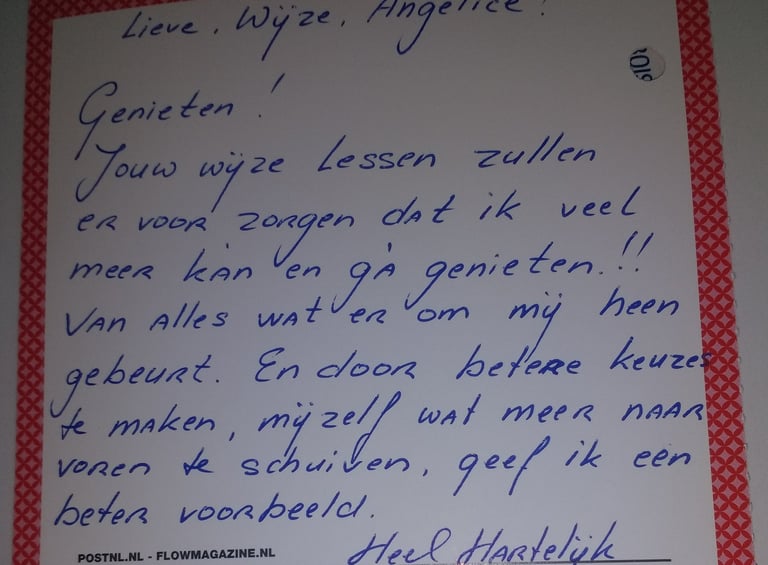 Lieve, Wijze, Angelice!
Genieten!
Jouw wijze lessen zullen
er voor zorgen dat ik veel
meer kàn en gà genieten.!!
Van alles wat er om mij heen
gebeurt. En door betere keuzes
te maken, mijzelf wat meer naar
voren te schuiven, geef ik een
beter voorbeeld.
POSTNL.NL - FLOWMAGAZINE.NL
Heel Hartelijk